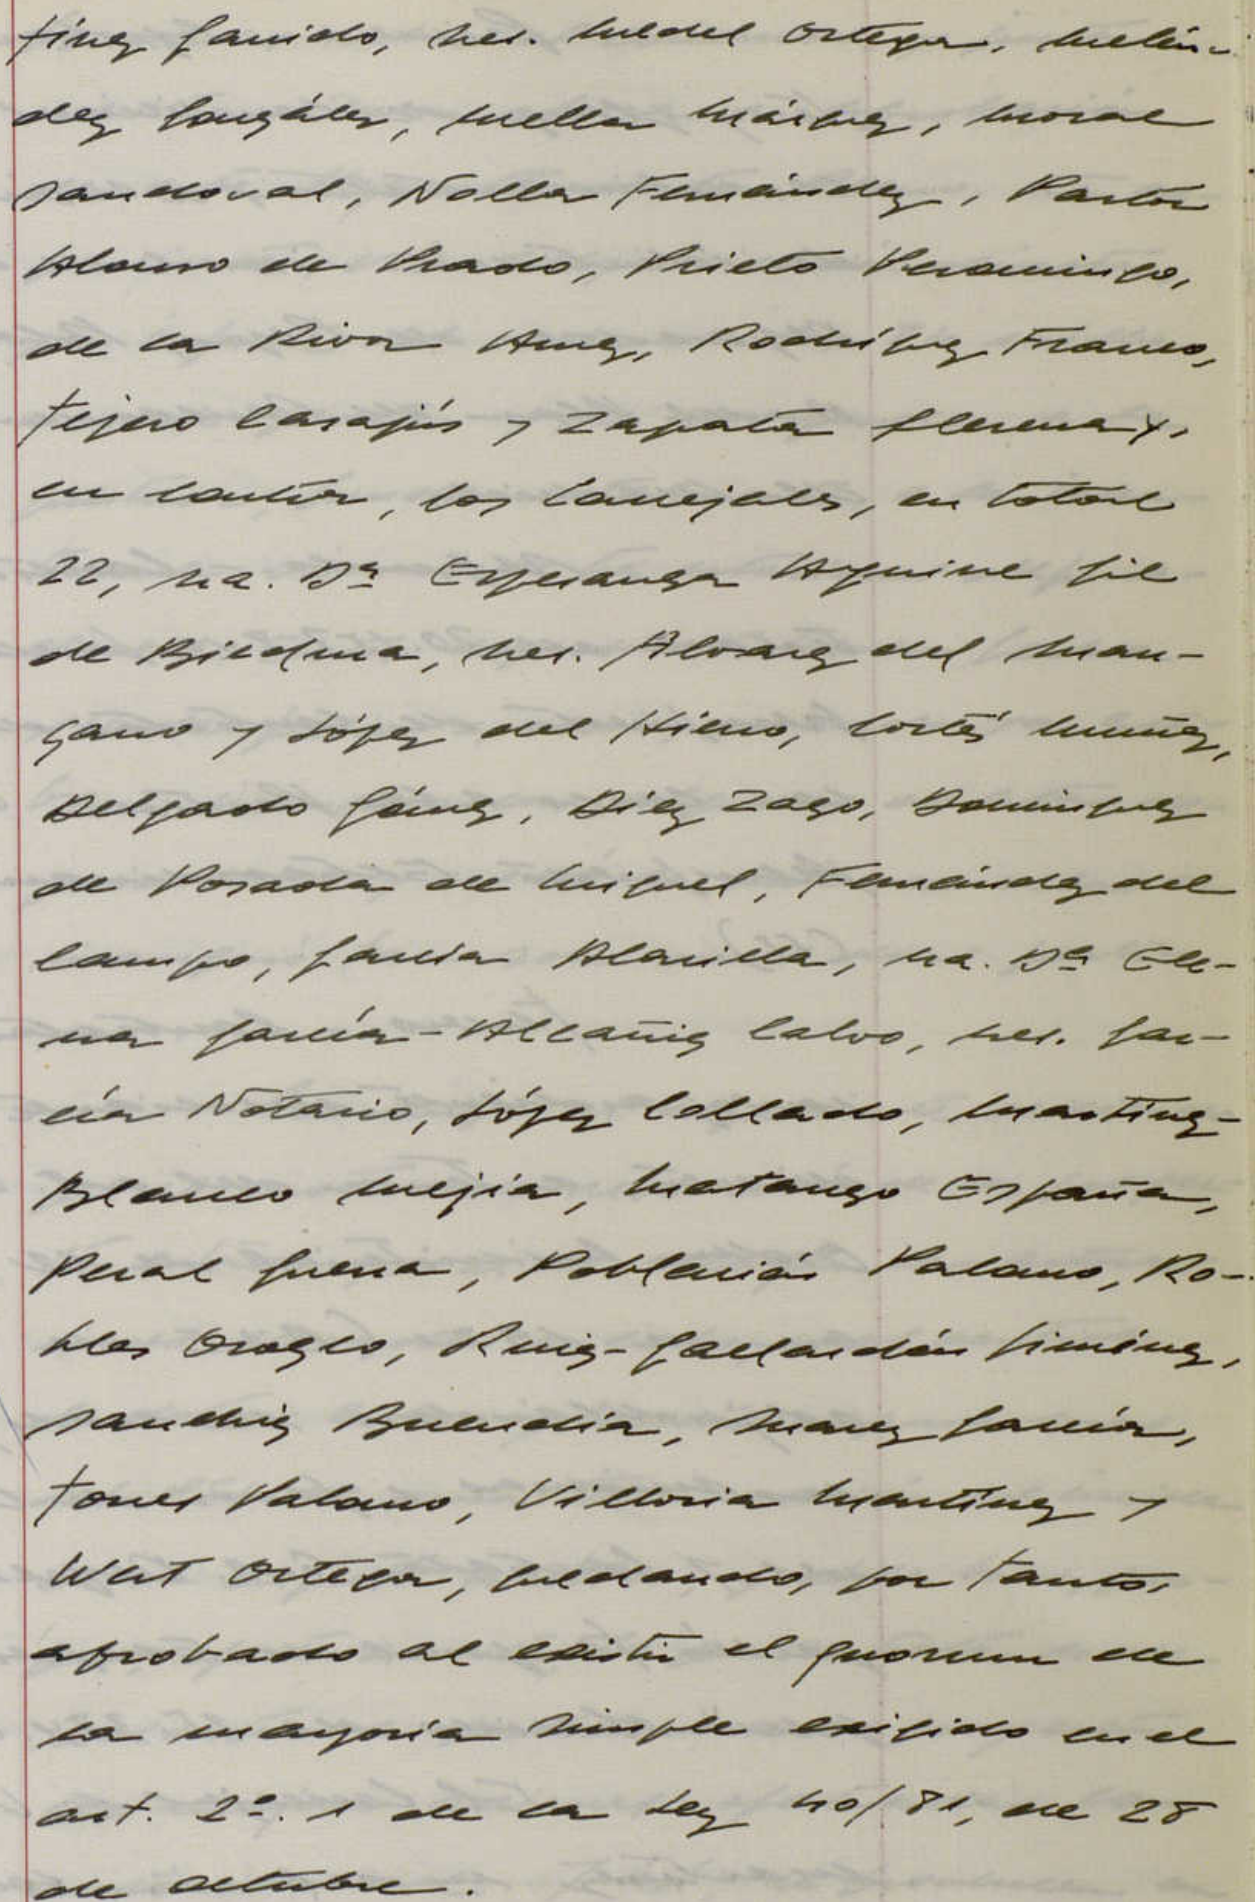 tínez Garrido, Sres. Medel Ortega, Melén-
dez González, Mella Márquez, Moral
Sandoval, Nolla Fernández, Pastor
Alonso de Prado, Prieto Peromingo,
de la Riva Amez, Rodríguez Franco,
Tejero Casajús y Zapata Llerena y,
en contra, los Concejales, en total
22, Sra. Dª Esperanza Aguirre Gil
de Biedma, Sres. Álvarez del Man-
zano y López del Hierro, Cortés Muñoz,
Delgado Gómez, Díez Zago, Domínguez
de Posada de Miguel, Fernández del
Campo, García Alarilla, Sra. Dª Ele-
na García-Alcañiz Calvo, Sres. Gar-
cía Notario, López Collado, Martínez-
Blanco Mejía, Matanzo España,
Peral Guerra, Población Palomo, Ro-
bles Orozco, Ruiz-Gallardón Jiménez,
Sanchiz Buendía, Suárez García,
Torres Palomo, Villoria Martínez y
Wert Ortega, quedando, por tanto,
aprobado al existir el quorum de
la mayoría simple exigido en el
art. 2º. 1 de la Ley 40/81, de 28
de octubre.